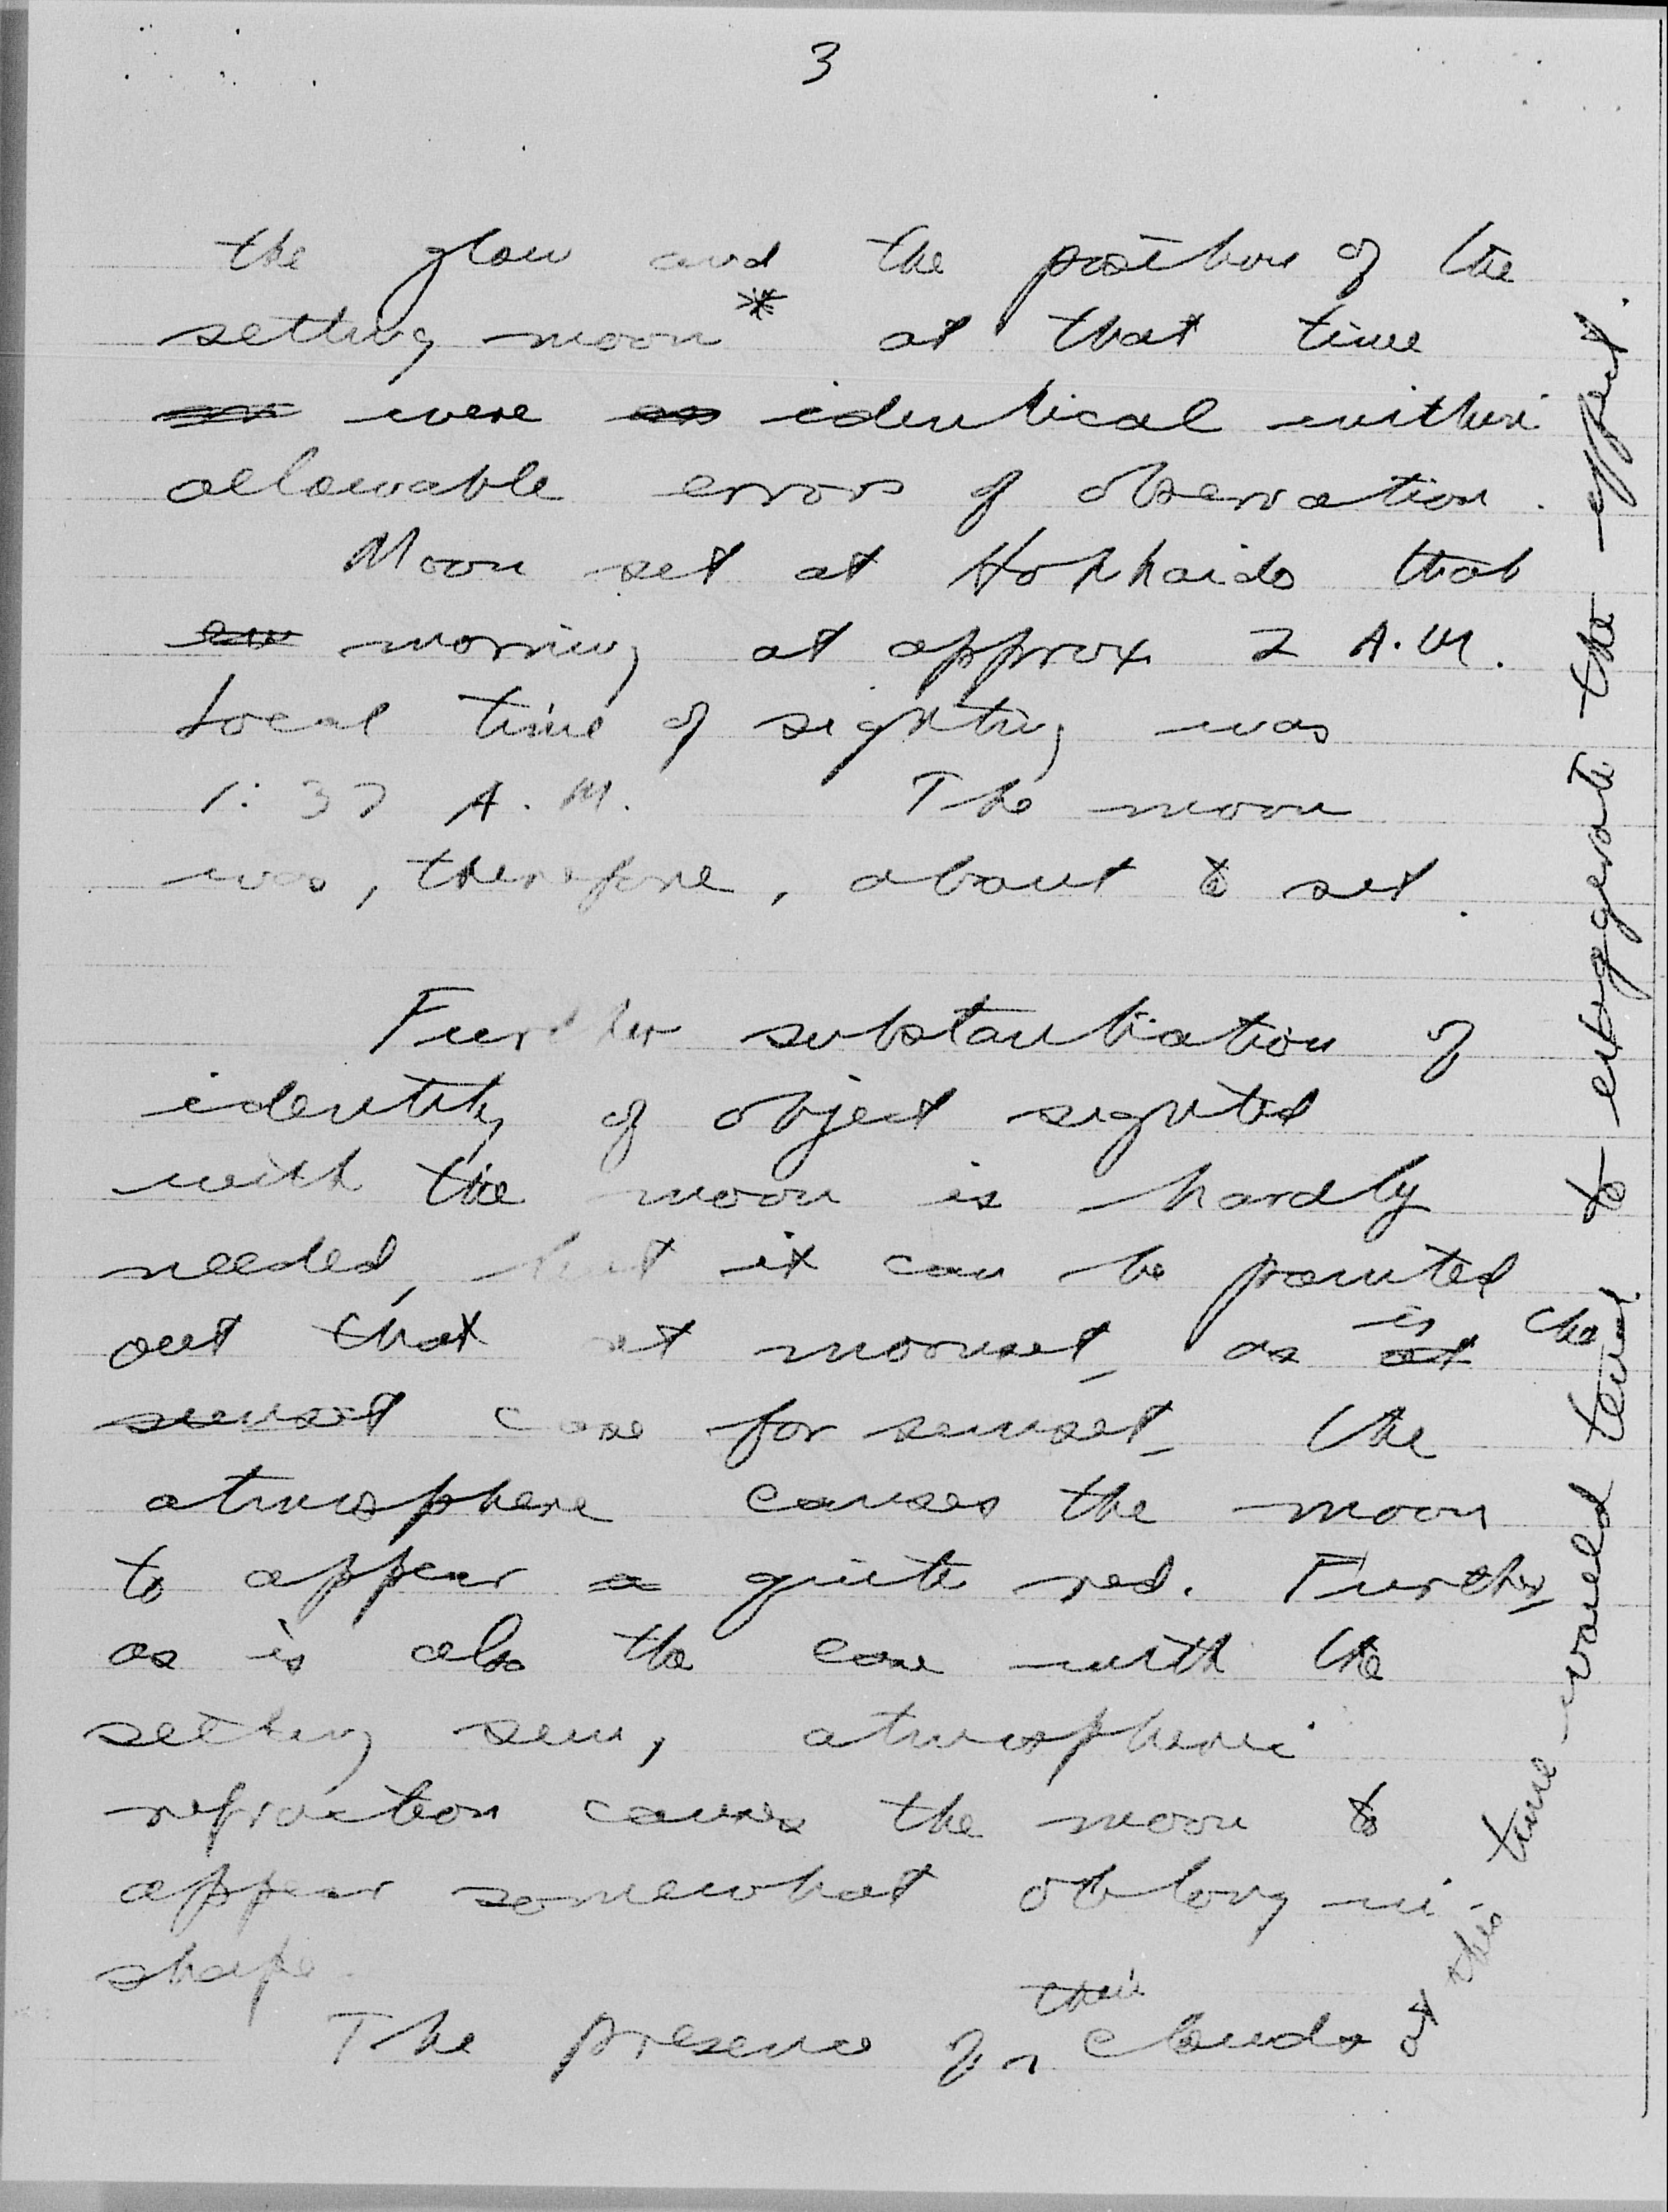 3
the glow and the position of the
setting moon* at that time
were identical within
allowable errors of observation.
Moon set at Hokkaido that
morning at approx 2 A.M.
Local time of sighting was
1:37 A.M. The moon
was, therefore, about to set.
Further substantiation of
identity of object sighted
with the moon is hardly
needed, but it can be pointed
out that at moonset, as is the
sunset case for sunset, the
atmosphere causes the moon
to appear a quite red. Further,
as is also the case with the
setting sun, atmospheric
refraction causes the moon to
appear somewhat oblong in
shape.
The presence of thin clouds
at this time would tend to exaggerate the effect.